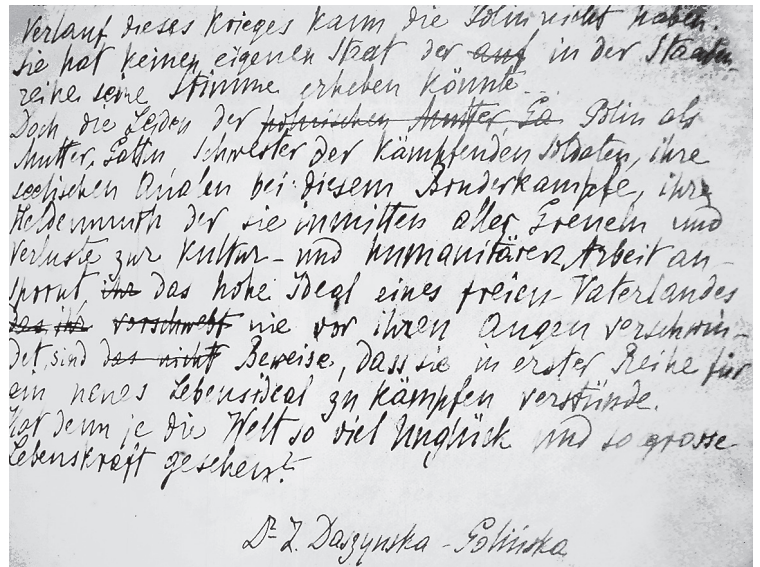 Verlauf dieses Krieges kann die Polin nicht haben.
Sie hat keinen eigenen Staat der auf in der Staaten-
reihe seine Stimme erheben könnte.
Doch die Leiden der polnischen Mutter, Ga Polin als
Mutter, Gattin Schwester der kämpfenden Soldaten, ihre
seelischen Qualen bei diesem Bruderkampfe, ihre
Heldenmuth der sie inmitten aller Greueln und
Verluste zur Kultur- und humanitären Arbeit an-
spornt, ihr das hohe Ideal eines freien Vaterlandes
das ihr vorschwebt nie vor ihren Augen verschwin-
det, sind das nicht Beweise, dass sie in erster Reihe für
ein neues Lebensideal zu kämpfen verstünde.
Hat denn je die Welt so viel Unglück und so grosse
Lebenskraft gesehen?
Dr Z. Daszynska-Golińska